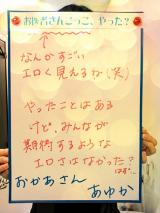 お医者さんごっこ、やった?
なんかすごい
エロく見えるな(笑)
やったことはある
けど、みんなが
期待するような
エロさはなかった?
はず…
おかあさん
あゆか